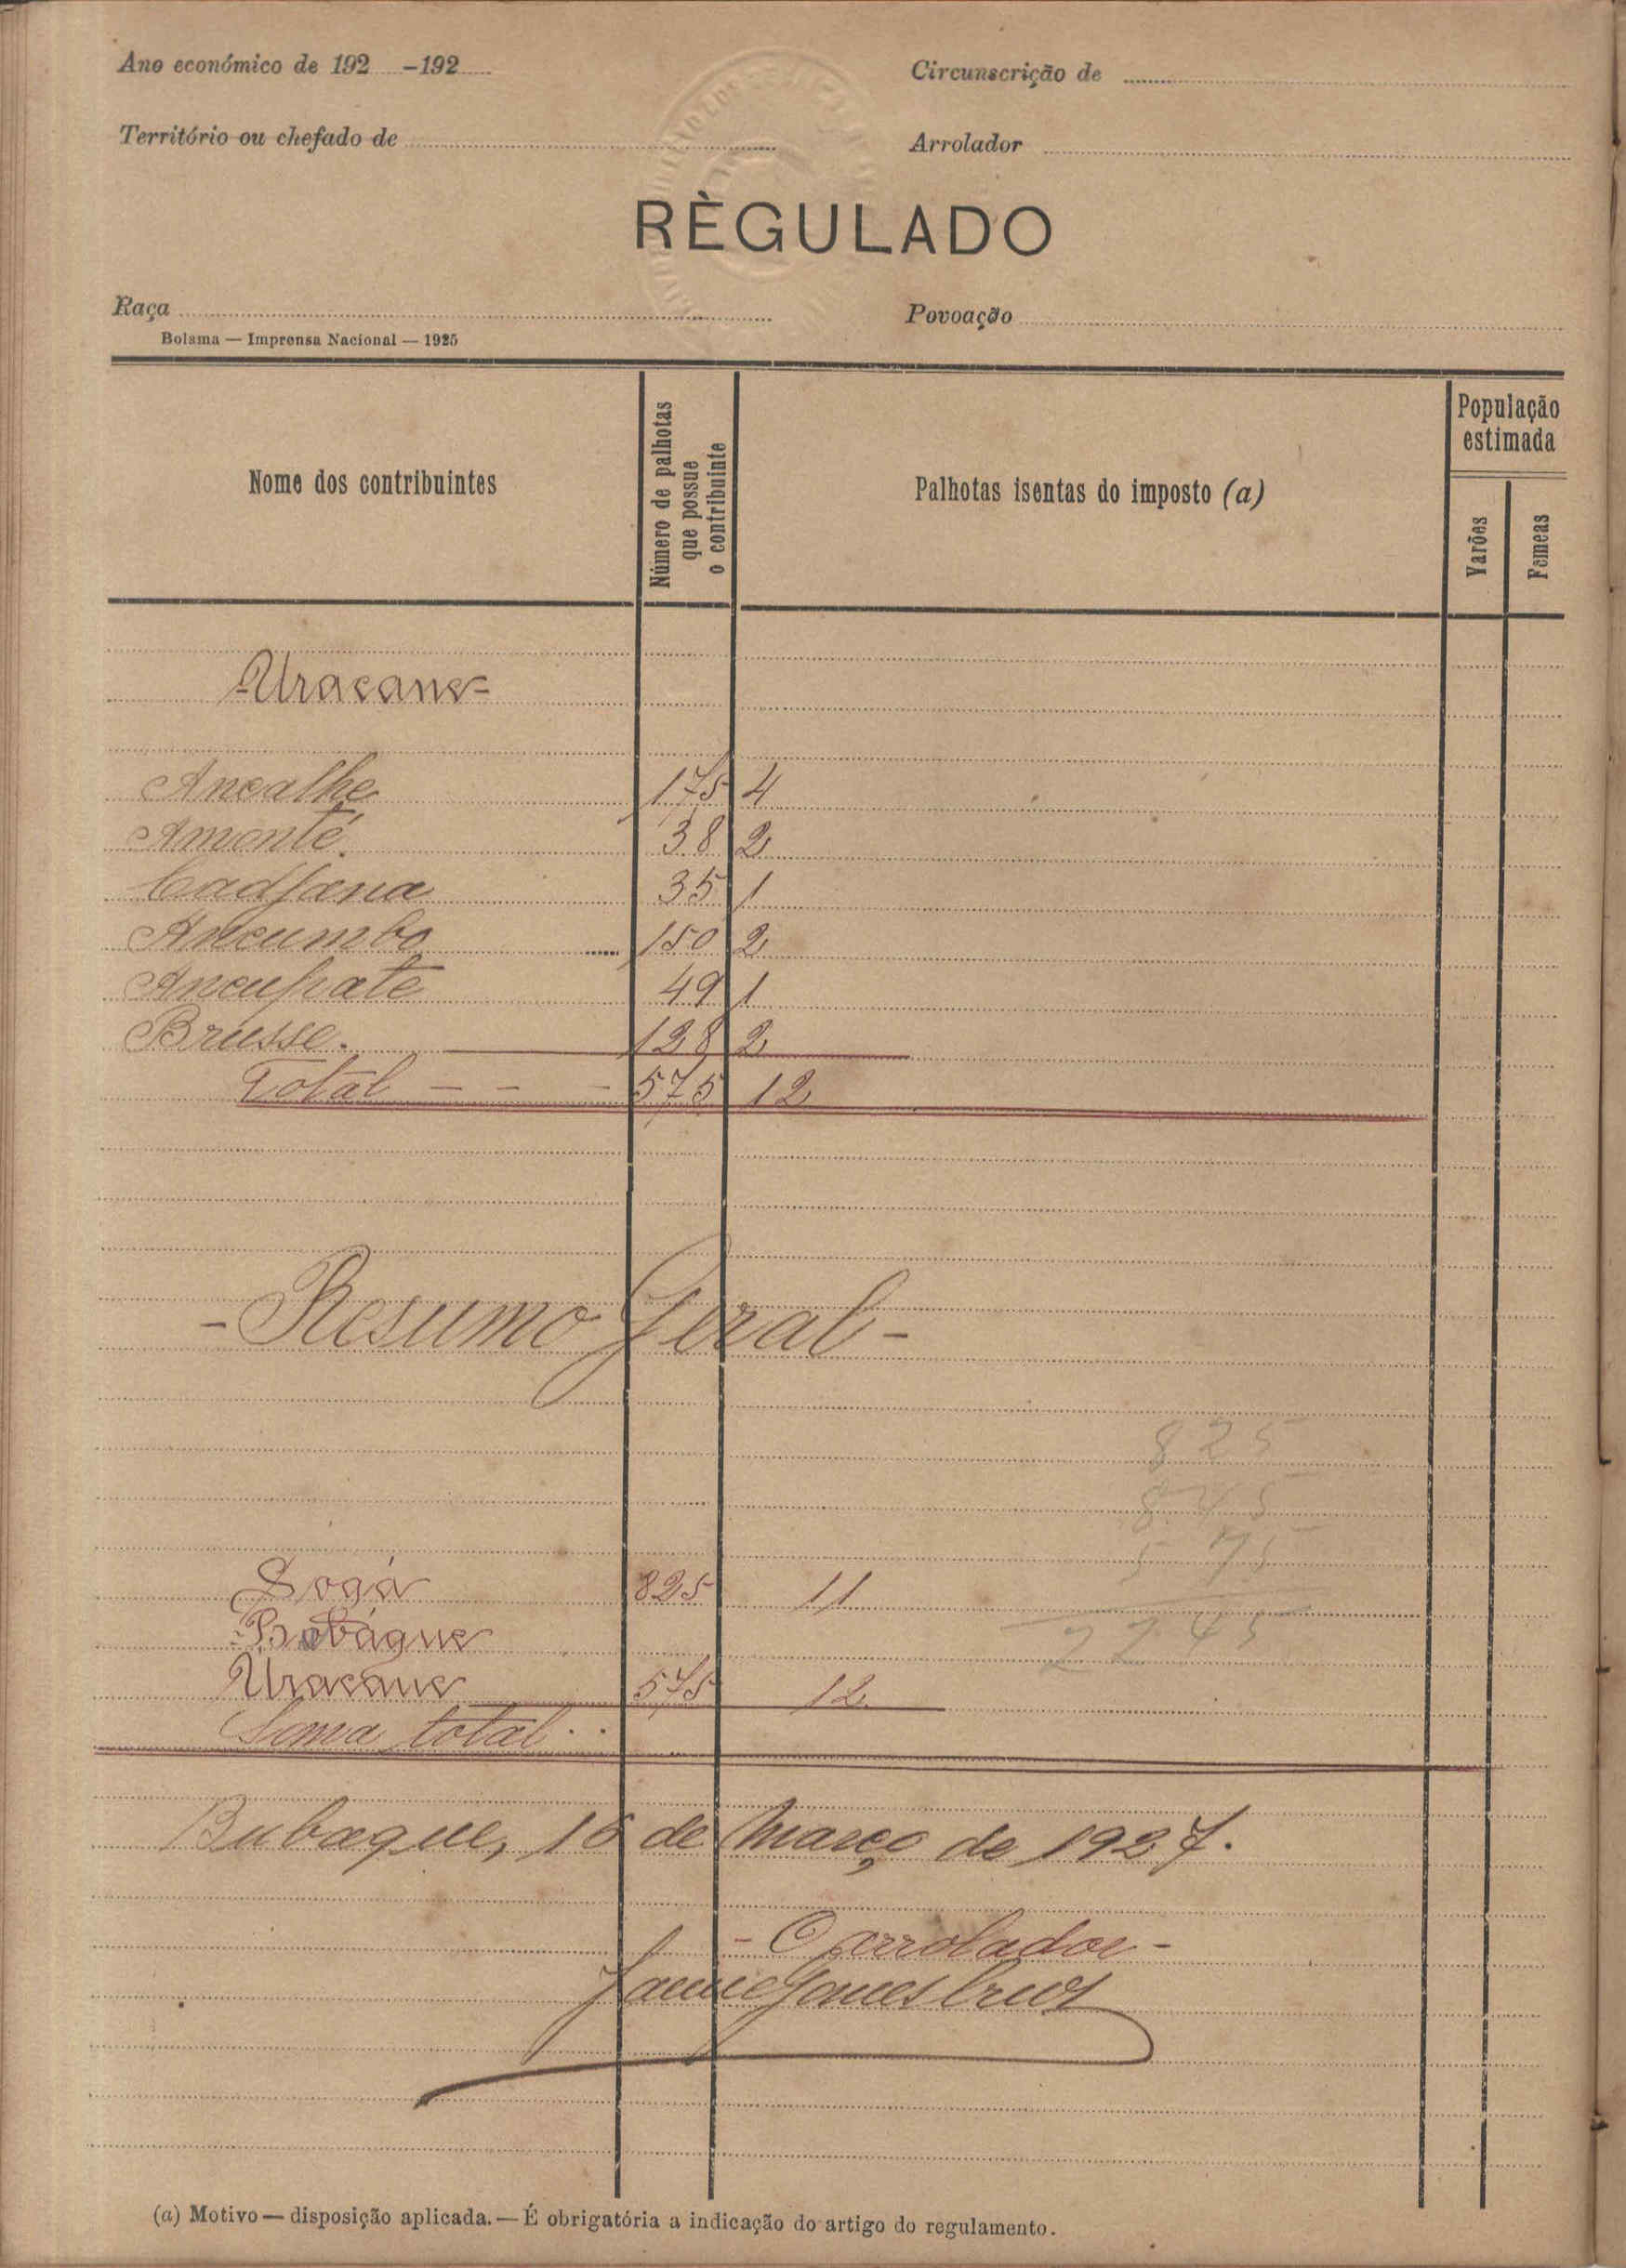 Ano económico de 192 -192
Circunscrição de
Território ou chefado de
Arrolador
RÈGULADO
Raça
Povoação
Bolama — Imprensa Nacional — 1925
Nome dos contribuintes
Número de palhotas que possue o contribuinte
Palhotas isentas do imposto (a)
População estimada
Varões
Femeas
-Uracane-
Ancalhe 175 4
Amonté. 38 2
Cadjana 35 1
Ancumbo 150 2
Ancupate 49 1
Brusse. 128 2
Total - - - 575 12
-Resumo Geral-
825
845
575
2245
Sogá 825 11
Bubáque
Uracane 575 12
Soma total . .
Bubaque, 16 de Março de 1927.
- O arrolador -
(a) Motivo — disposição aplicada. — É obrigatória a indicação do artigo do regulamento.